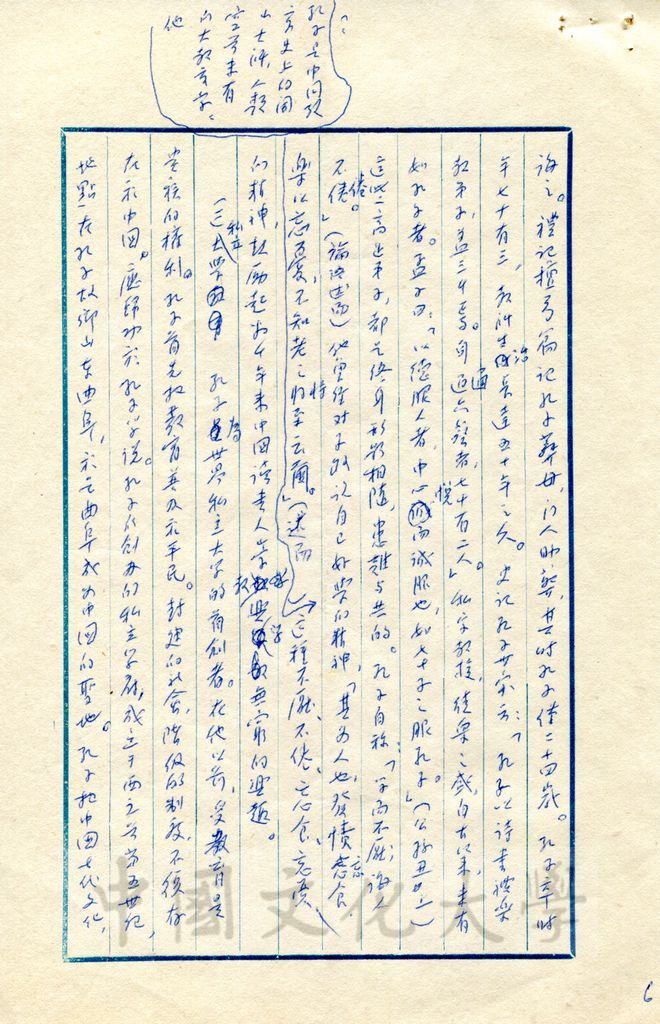 孔子是中國教
育史上的開
山大師，人類
空前未有
的大教育家。
他
誨之。禮記檀弓篇記孔子葬母，門人助葬，其時孔子僅二十四歲。孔子卒時
年七十有三，教師生活長達五十年之久。史記孔子世家云：「孔子以詩書禮樂
教弟子，蓋三千焉。身通六藝者，七十有二人。」私家教授，徒眾之盛，自古以來，未有
如孔子者。孟子曰：「以德服人者，中心悅而誠服也，如七十子之服孔子。」（公孫丑上）
這些高足弟子，都是終身形影相隨，患難與共的。孔子自稱：「學而不厭，誨人
不倦。」（論語述而）他曾經對子路說自己好學的精神，「其為人也，發憤忘食，
樂以忘憂，不知老之將至云爾。」（述而）這種不厭、不倦、忘食、忘憂
的精神，鼓勵起兩千年來中國讀書人學無窮的興趣。
（三）私立大學 孔子為世界私立大學的首創者。在他以前，受教育是
貴族的權利。孔子首先把教育普及於平民。封建的社會，階級的制度，不復存
在於中國。應歸功於孔子學說。孔子所創辦的私立學府，成立于西元前第五世紀，
地點在孔子故鄉山東曲阜，於是曲阜成為中國的聖地。孔子把中國古代文化，
中國文化大學
6